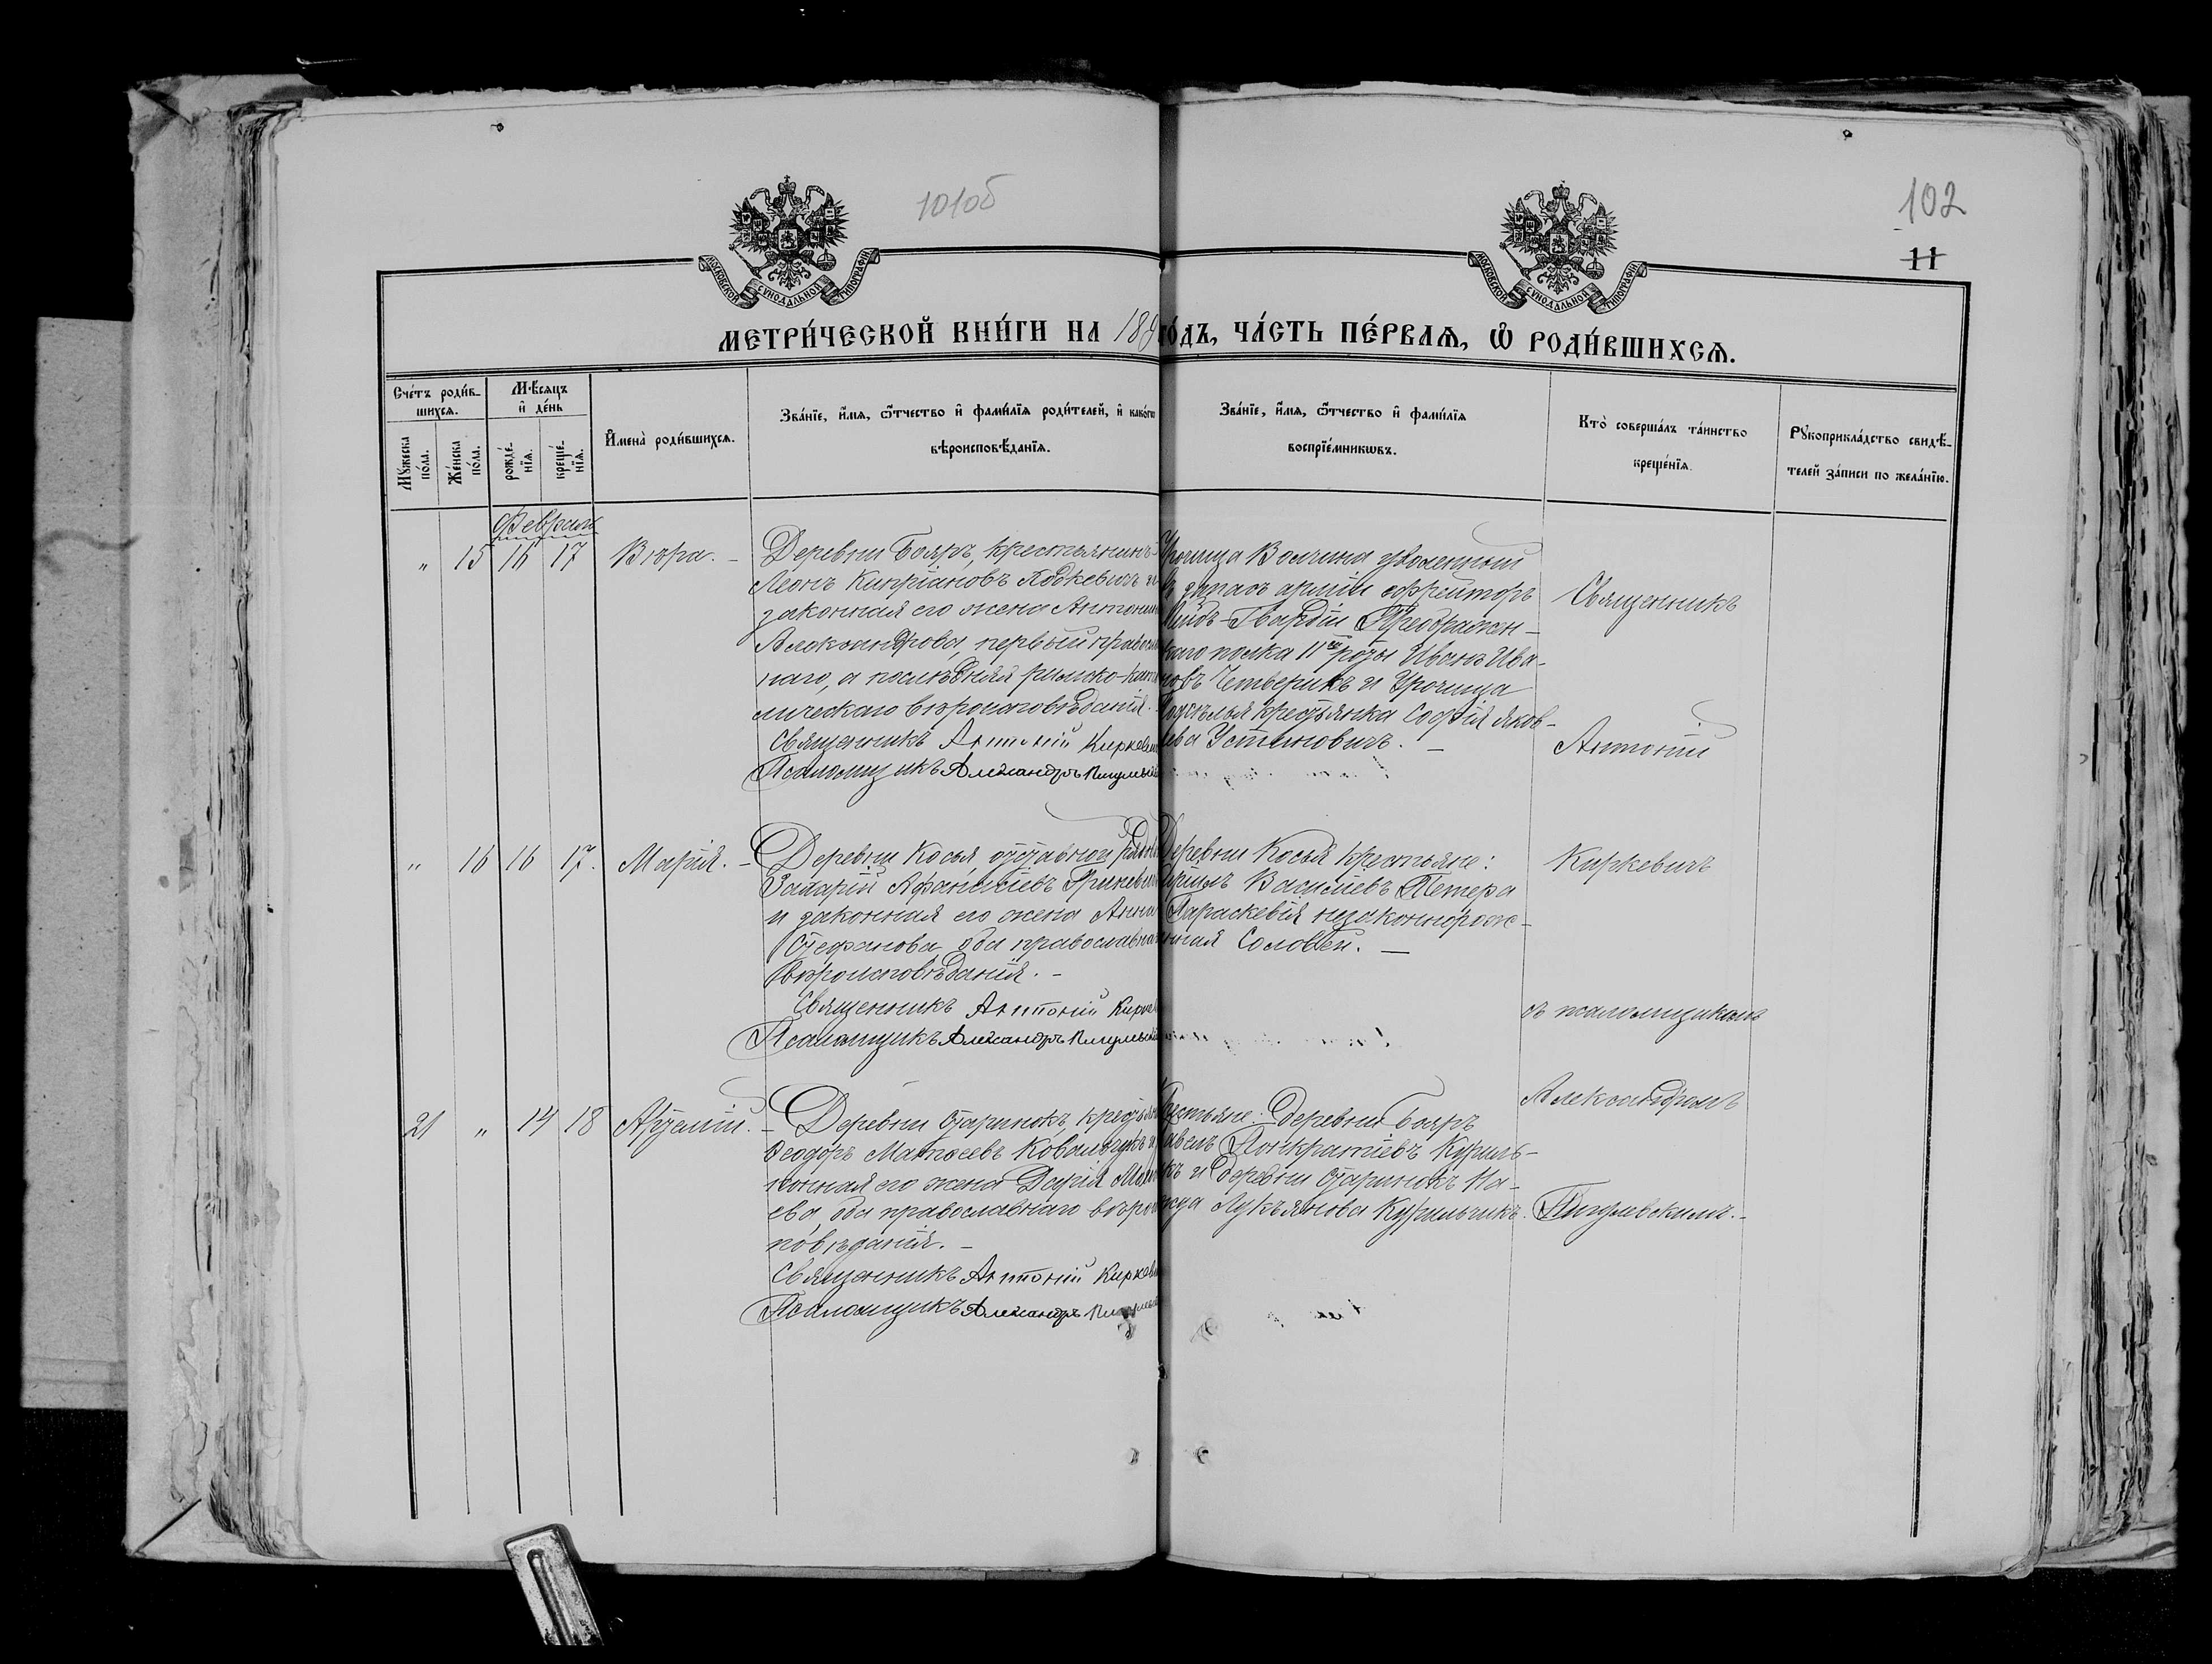 101об
102
11
МОСКОВСКОЙ СѴНОДАЛЬНОЙ ТИПОГРАФІИ
МОСКОВСКОЙ СѴНОДАЛЬНОЙ ТИПОГРАФІИ
МЕТРИ́ЧЕСКОЙ КНИ́ГИ НА 189 го́дъ, ЧА́СТЬ ПЕ́РВАЯ, Ѿ РОДИ́ВШИХСЯ.
Сче́тъ роди́в-
шихся.
Мѣ́сяцъ
и҆ де́нь
Мꙋ́жеска
по́ла.
Же́нска
по́ла.
рожде́-
нїя.
креще́-
нїя.
И҆мена̀ роди́вшихся.
Зва́нїе, и҆́мя, ѻ҆́тчество и҆ фами́лїя роди́телей, и҆ како́гѡ
вѣроисповѣ́данїя.
Зва́нїе, и҆́мя, ѻ҆́тчество и҆ фами́лїя
воспрїе́мникѡвъ.
Кто̀ соверша́лъ та́инство
креще́нїя.
Рꙋкоприкла́дство свидѣ́-
телей за́писи по жела́нїю.
Февраль
" 15 16 17 Вѣра. –
Деревни Бояръ, крестьянинъ
Леонъ Кипріановъ Ходкевичъ и
законная его жена Антонин
Александрова, первый правосл
наго, а послѣдняя римско-като
лическаго вѣроисповѣданія.
Священникъ Антоній Киркевич
Псаломщикъ Александръ
Урочища Волчина уволенный
въ запасъ арміи ефрейторъ
Лейбъ-Гвардіи Преображен-
скаго полка 11й роты Иванъ Ива-
новъ Четверикъ и Урочища
крестьянка Софія Яков-
лева Устиновичъ. –
Священникъ
Антоній
" 16 16 17. Марія. –
Деревни Косья отставной рядов
Захарій Афанасіевъ Гриневич
и законная его жена Анна
Стефанова, оба православна
вѣроисповѣданія. –
Священникъ Антоній Киркев
Псаломщикъ Александръ
Деревни Косья крестьяне:
Кириллъ Васильевъ Петера
Параскевія незаконнорож-
енная Соловей. –
Киркевичъ
съ псаломщикомъ
Александромъ
21 " 14 18 Артемій. –
Деревни Старинокъ, крестьян
Ѳеодоръ Матѳеевъ Ковальчукъ и
конная его жена Дарія
ева, оба православнаго вѣроис
повѣданія. –
Священникъ Антоній Киркев
Псаломщикъ Александръ
Крестьяне: Деревни Бояръ
Павелъ Понкратіевъ Куриль-
чикъ и деревни Старинокъ На-
Лукьянова Курильчикъ.